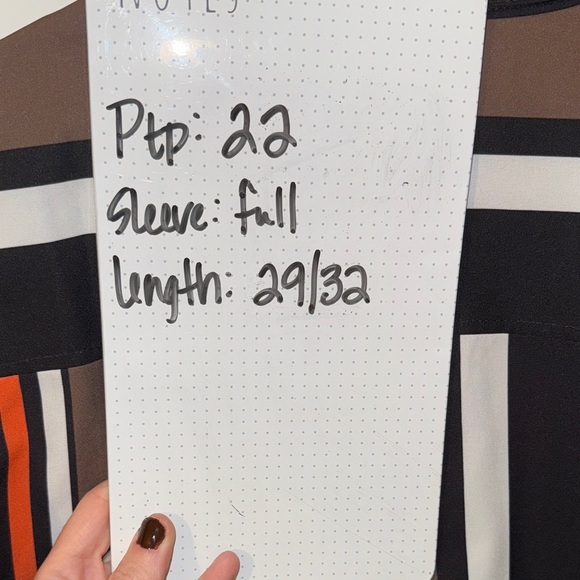 NOTES
Ptp: 22
Sleeve: full
length: 29/32